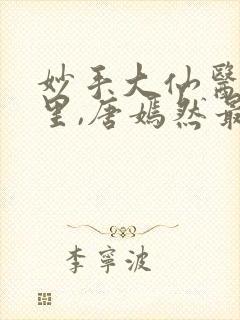 妙手大仙醫
里,唐嫣然最
李寧波